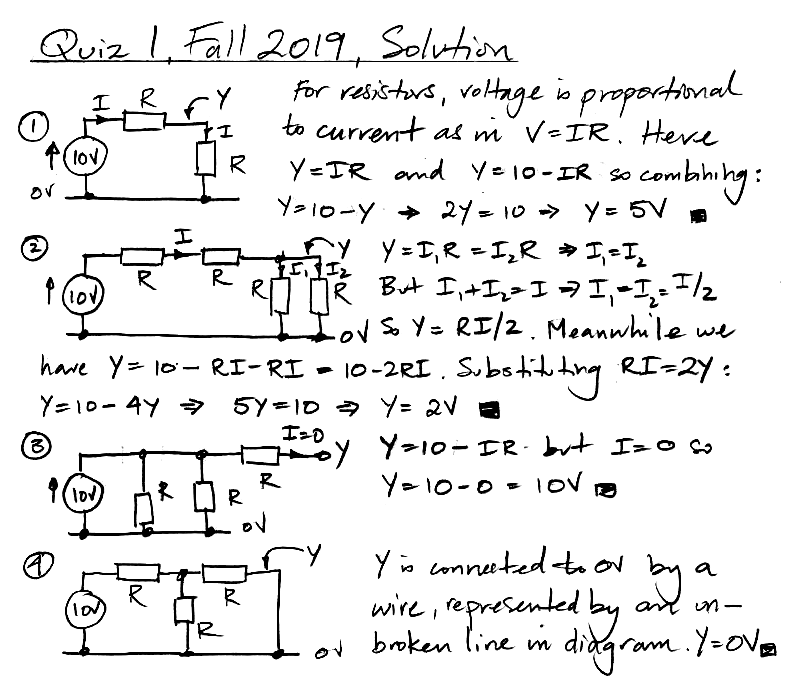 Quiz 1, Fall 2019, Solution
① I R Y I R 10V 0V
For resistors, voltage is proportional
to current as in V=IR. Here
Y=IR and Y=10-IR so combining:
Y=10-Y → 2Y=10 ⇒ Y=5V
② I R R I₁ I₂ Y R R 10V 0V
Y=I₁R=I₂R ⇒ I₁=I₂
But I₁+I₂=I ⇒ I₁=I₂=I/2
So Y=RI/2. Meanwhile we
have Y=10-RI-RI=10-2RI. Substituting RI=2Y:
Y=10-4Y ⇒ 5Y=10 ⇒ Y=2V
③ I=0 Y R R R 10V 0V
Y=10-IR. but I=0 so
Y=10-0=10V
④ Y R R R 10V 0V
Y is connected to 0V by a
wire, represented by an un-
broken line in diagram. Y=0V